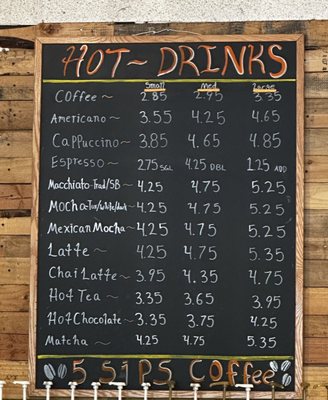 HOT~DRINKS
Small Med Large
Coffee ~ 2.85 2.95 3.35
Americano ~ 3.55 4.25 4.65
Cappuccino ~ 3.85 4.65 4.85
Espresso ~ 2.75 SGL 4.25 DBL 1.25 ADD
Macchiato-Trad/SB ~ 4.25 4.75 5.25
Mocha-Tux/white/dark ~ 4.25 4.75 5.25
Mexican Mocha ~ 4.25 4.75 5.25
Latte ~ 4.25 4.75 5.35
Chai Latte ~ 3.95 4.35 4.75
Hot Tea ~ 3.35 3.65 3.95
Hot Chocolate ~ 3.35 3.75 4.25
Matcha ~ 4.25 4.75 5.35
5 SIPS Coffee